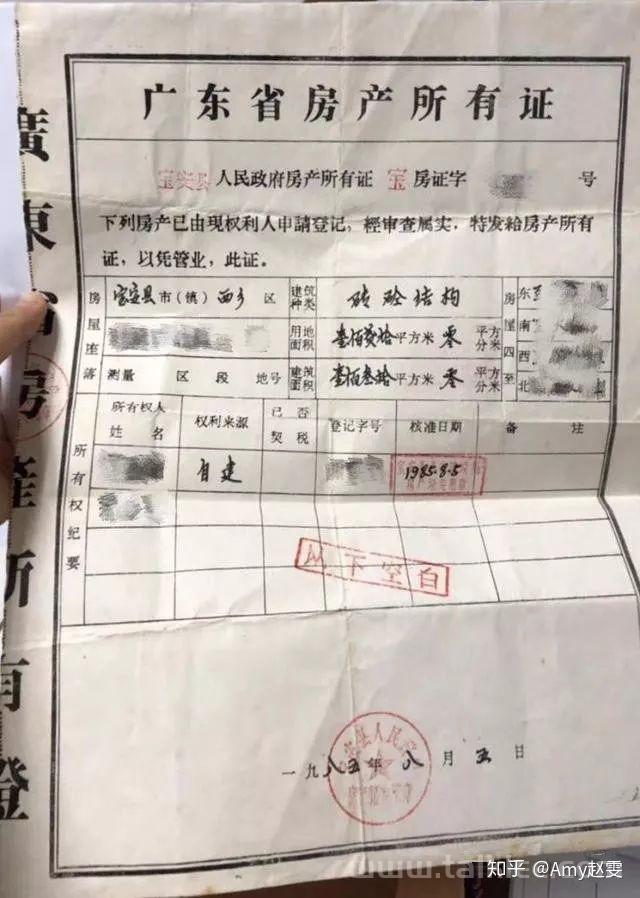 广东省房产所有证
宝安县人民政府房产所有证 宝 房证字 号
下列房产已由现权利人申請登记,經审查属实,特发給房产所有
证,以凭管业,此证。
房屋座落
宝安县市(镇)西乡区
测量 区 段 地号
建筑种类
砖砼结构
用地面积
壹佰贰拾平方米零平方分米
建筑面积
壹佰叁拾平方米零平方分米
房屋四至
东
南
西
北
所有权纪要
所有权人姓名 权利来源 已否契税 登记字号 核准日期 备注
自建 1985.8.5
以下空白
一九八五年八月五日
廣東省房產所有證
知乎 @Amy赵雯